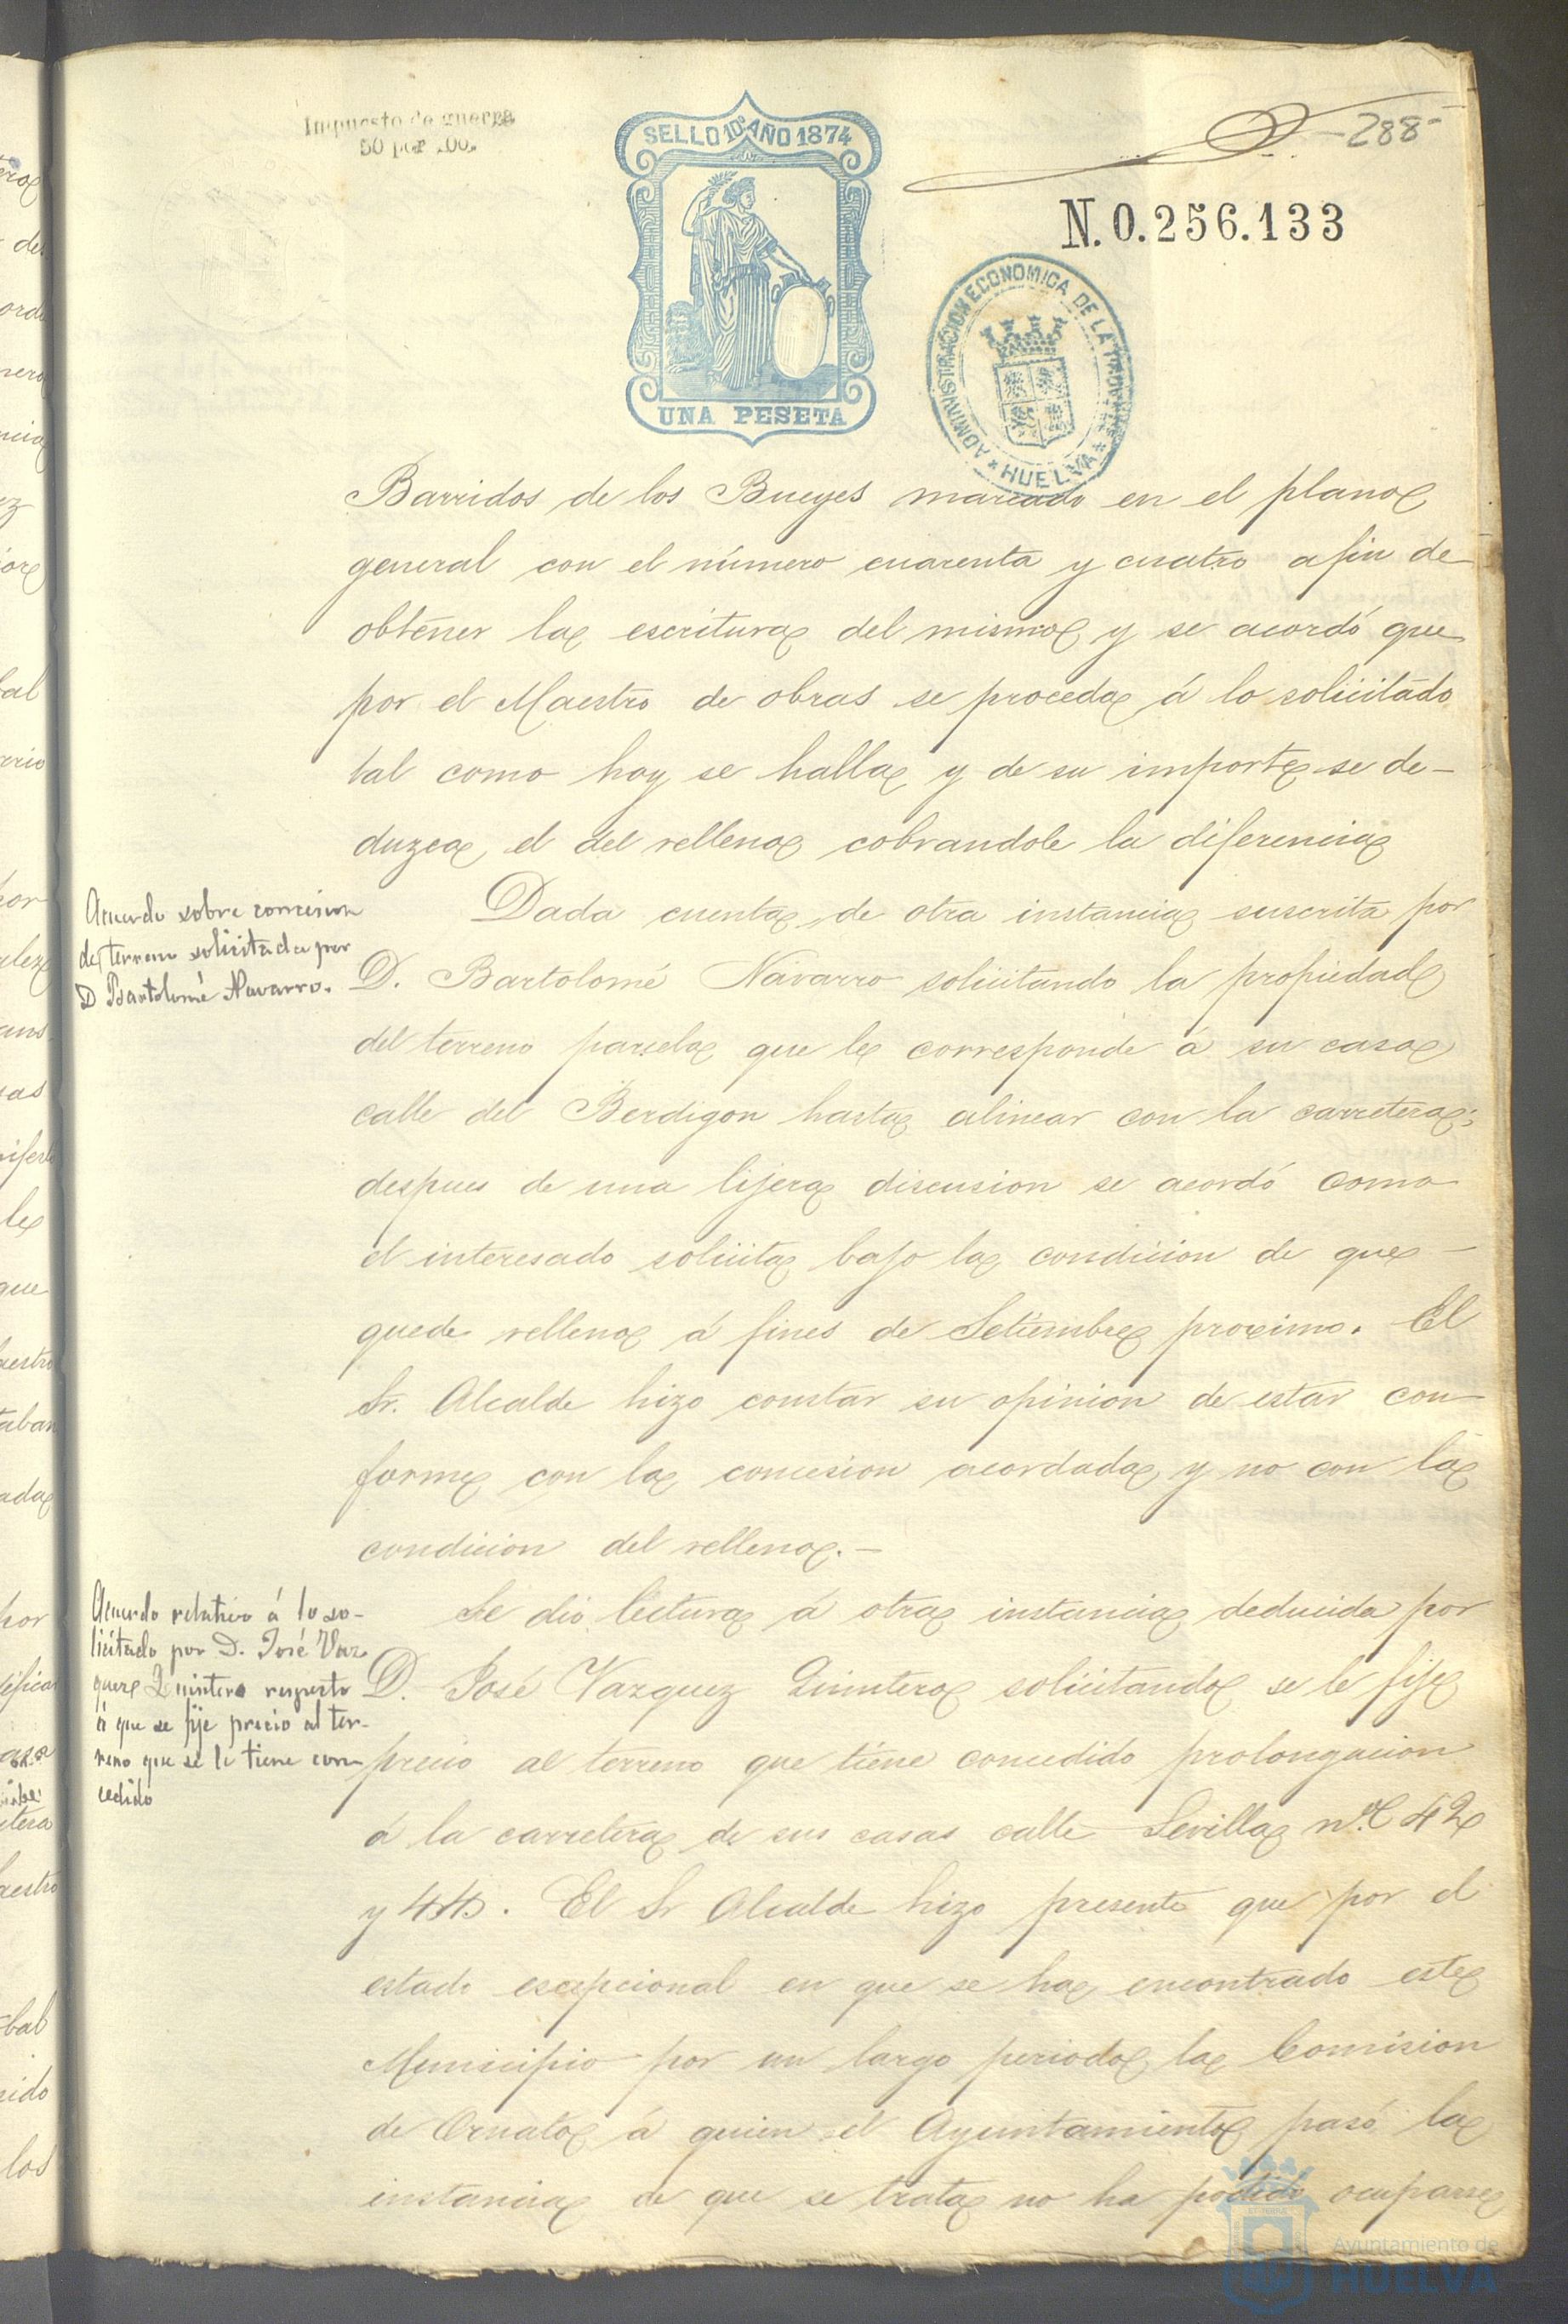 Impuesto de guerra
50 por 100.
SELLO 10º AÑO 1874
UNA PESETA
-288-
N. 0.256.133
ADMINISTRACION ECONOMICA DE LA PROVINCIA
* HUELVA *
Barridos de los Bueyes marcado en el plano
general con el número cuarenta y cuatro afin de
obtener la escritura del mismo y se acordó que
por el Maestro de obras se proceda á lo solicitado
tal como hoy se halla y de su importe se de-
duzca el del relleno cobrandole la diferencia
Acuerdo sobre concesion
de terreno solicitada por
D Bartolomé Navarro.
Dada cuenta de otra instancia suscrita por
D. Bartolomé Navarro solicitando la propiedad
del terreno parcela que le corresponde á su casa
calle del Berdigon hasta alinear con la carretera;
despues de una lijera discusion se acordó como
el interesado solicita bajo la condicion de que
quede relleno á fines de Setiembre proximo. El
Sr. Alcalde hizo constar su opinion de estar con
forme con la concesion acordada y no con la
condicion del relleno.-
Acuerdo relativo á lo so-
licitado por D. José Vaz
quez Quintero respecto
á que se fije precio al ter-
reno que se le tiene con
cedido
Se dió lectura á otra instancia deducida por
D. José Vazquez Quintero solicitando se le fije
precio al terreno que tiene concedido prolongacion
á la carretera de sus casas calle Sevilla nº 42
y 44. El Sr Alcalde hizo presente que por el
estado escepcional en que se ha encontrado este
Municipio por un largo periodo la Comision
de Ornato á quien el Ayuntamiento pasó la
instancia de que se trata no ha podido ocuparse
Ayuntamiento de
HUELVA